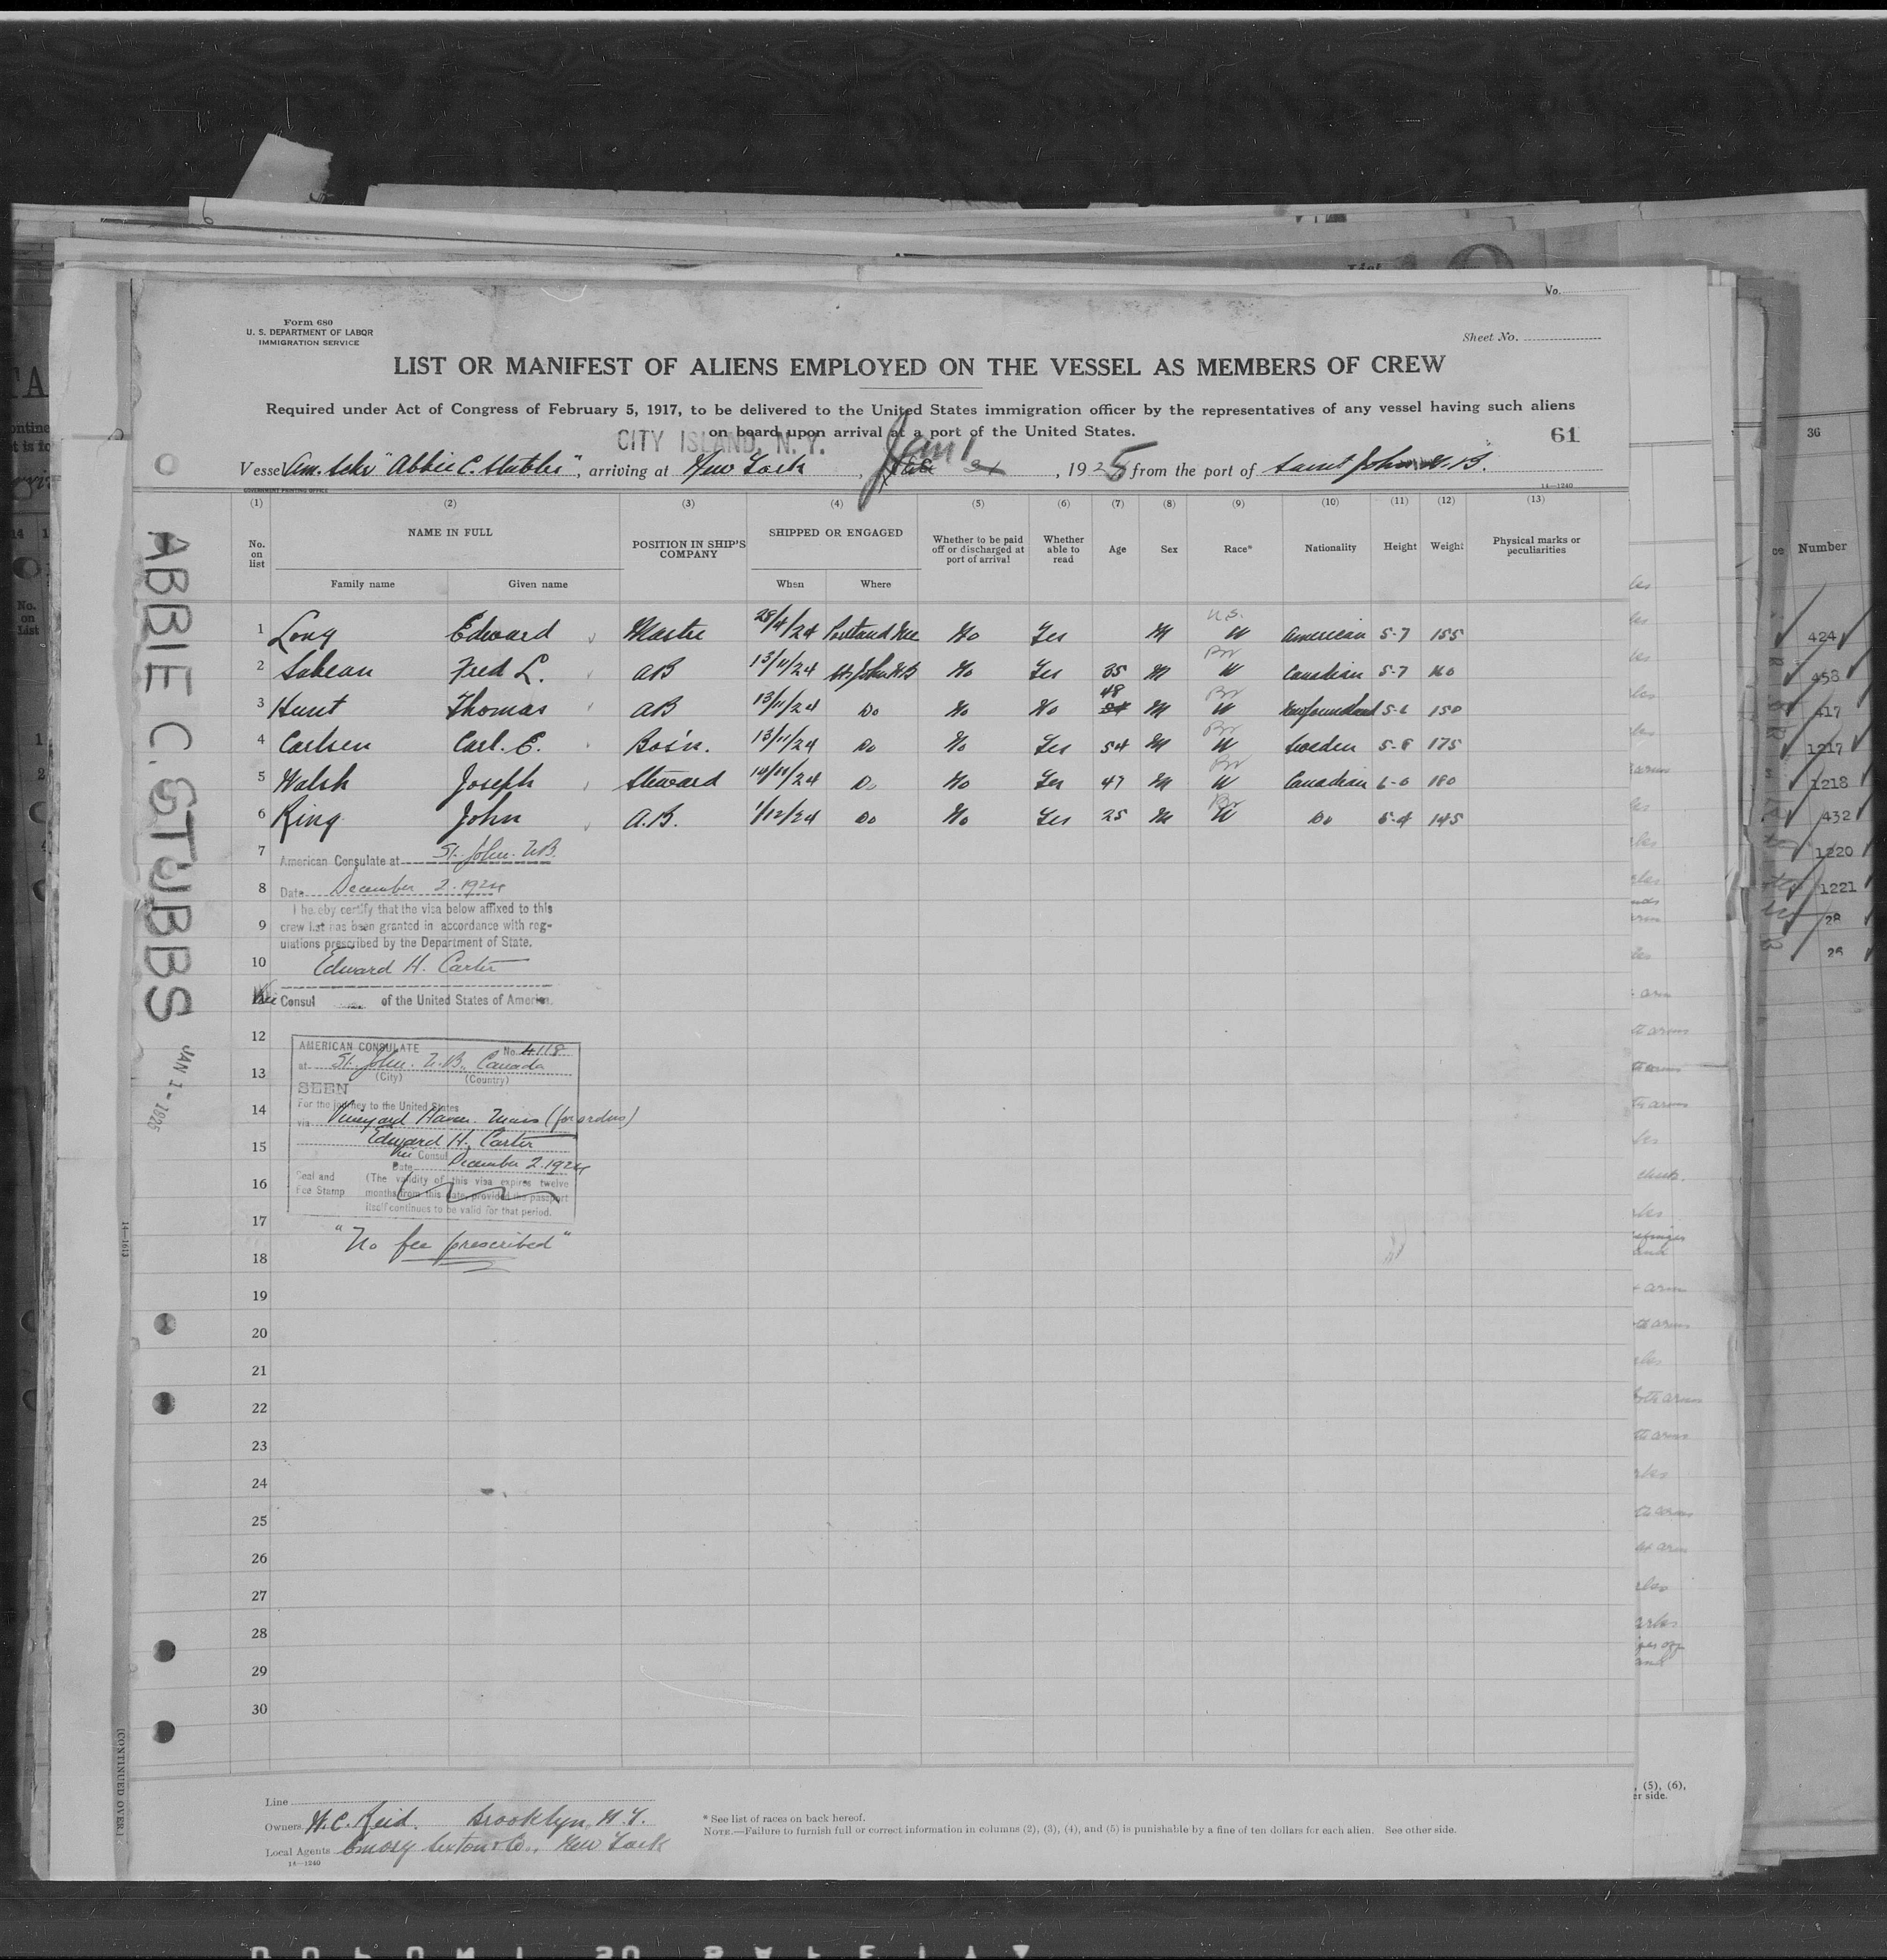 Form 680
U. S. DEPARTMENT OF LABOR
IMMIGRATION SERVICE
Sheet No.
LIST OR MANIFEST OF ALIENS EMPLOYED ON THE VESSEL AS MEMBERS OF CREW
Required under Act of Congress of February 5, 1917, to be delivered to the United States immigration officer by the representatives of any vessel having such aliens
on board upon arrival at a port of the United States.
CITY ISLAND, N. Y.
61
Vessel Am. Schr "Abbie C. Stubbs", arriving at New York, Jan 1, 1925 from the port of Saint John N. B.
GOVERNMENT PRINTING OFFICE
14—1240
(1) (2) (3) (4) (5) (6) (7) (8) (9) (10) (11) (12) (13)
No. on list NAME IN FULL POSITION IN SHIP'S COMPANY SHIPPED OR ENGAGED Whether to be paid off or discharged at port of arrival Whether able to read Age Sex Race* Nationality Height Weight Physical marks or peculiarities
Family name Given name When Where
U.S.
1 Long Edward Master 28/4/24 Portland Me No Yes M W American 5-7 155
Br
2 Sabean Fred L. AB 13/11/24 St John NB No Yes 35 M W Canadian 5-7 160
48 Br
3 Hunt Thomas AB 13/11/24 Do No No M W Newfoundland 5-6 150
Br
4 Carlsen Carl. E. Bos'n. 13/11/24 Do No Yes 54 M W Sweden 5-8 175
Br
5 Walsh Joseph Steward 14/11/24 Do No Yes 47 M W Canadian 6-0 180
Br
6 King John A.B. 1/12/24 Do No Yes 25 M W Do 5-4 145
7 American Consulate at St. John. N.B.
8 Date December 2. 1924
I hereby certify that the visa below affixed to this
9 crew list has been granted in accordance with reg-
ulations prescribed by the Department of State.
10 Edward H. Carter
Vice Consul of the United States of America.
12
AMERICAN CONSULATE No. 4118
13 at St. John. N.B. Canada
(City) (Country)
SEEN
For the journey to the United States
14 via Vineyard Haven. Mass (for orders)
15 Edward H. Carter
Vice Consul
Date December 2. 1924
16 Seal and Fee Stamp (The validity of this visa expires twelve
months from this date, provided the passport
itself continues to be valid for that period.
17
"No fee prescribed"
18
19
20
21
22
23
24
25
26
27
28
29
30
Line
Owners W. C. Reid. Brooklyn, N. Y.
Local Agents New York
14—1240
* See list of races on back hereof.
NOTE.—Failure to furnish full or correct information in columns (2), (3), (4), and (5) is punishable by a fine of ten dollars for each alien. See other side.
ABBIE C. STUBBS JAN 1 - 1925
14—1613
(CONTINUED OVER.)
36
Number
424
458
417
1217
1218
432
1220
1221
28
26
, (5), (6),
er side.